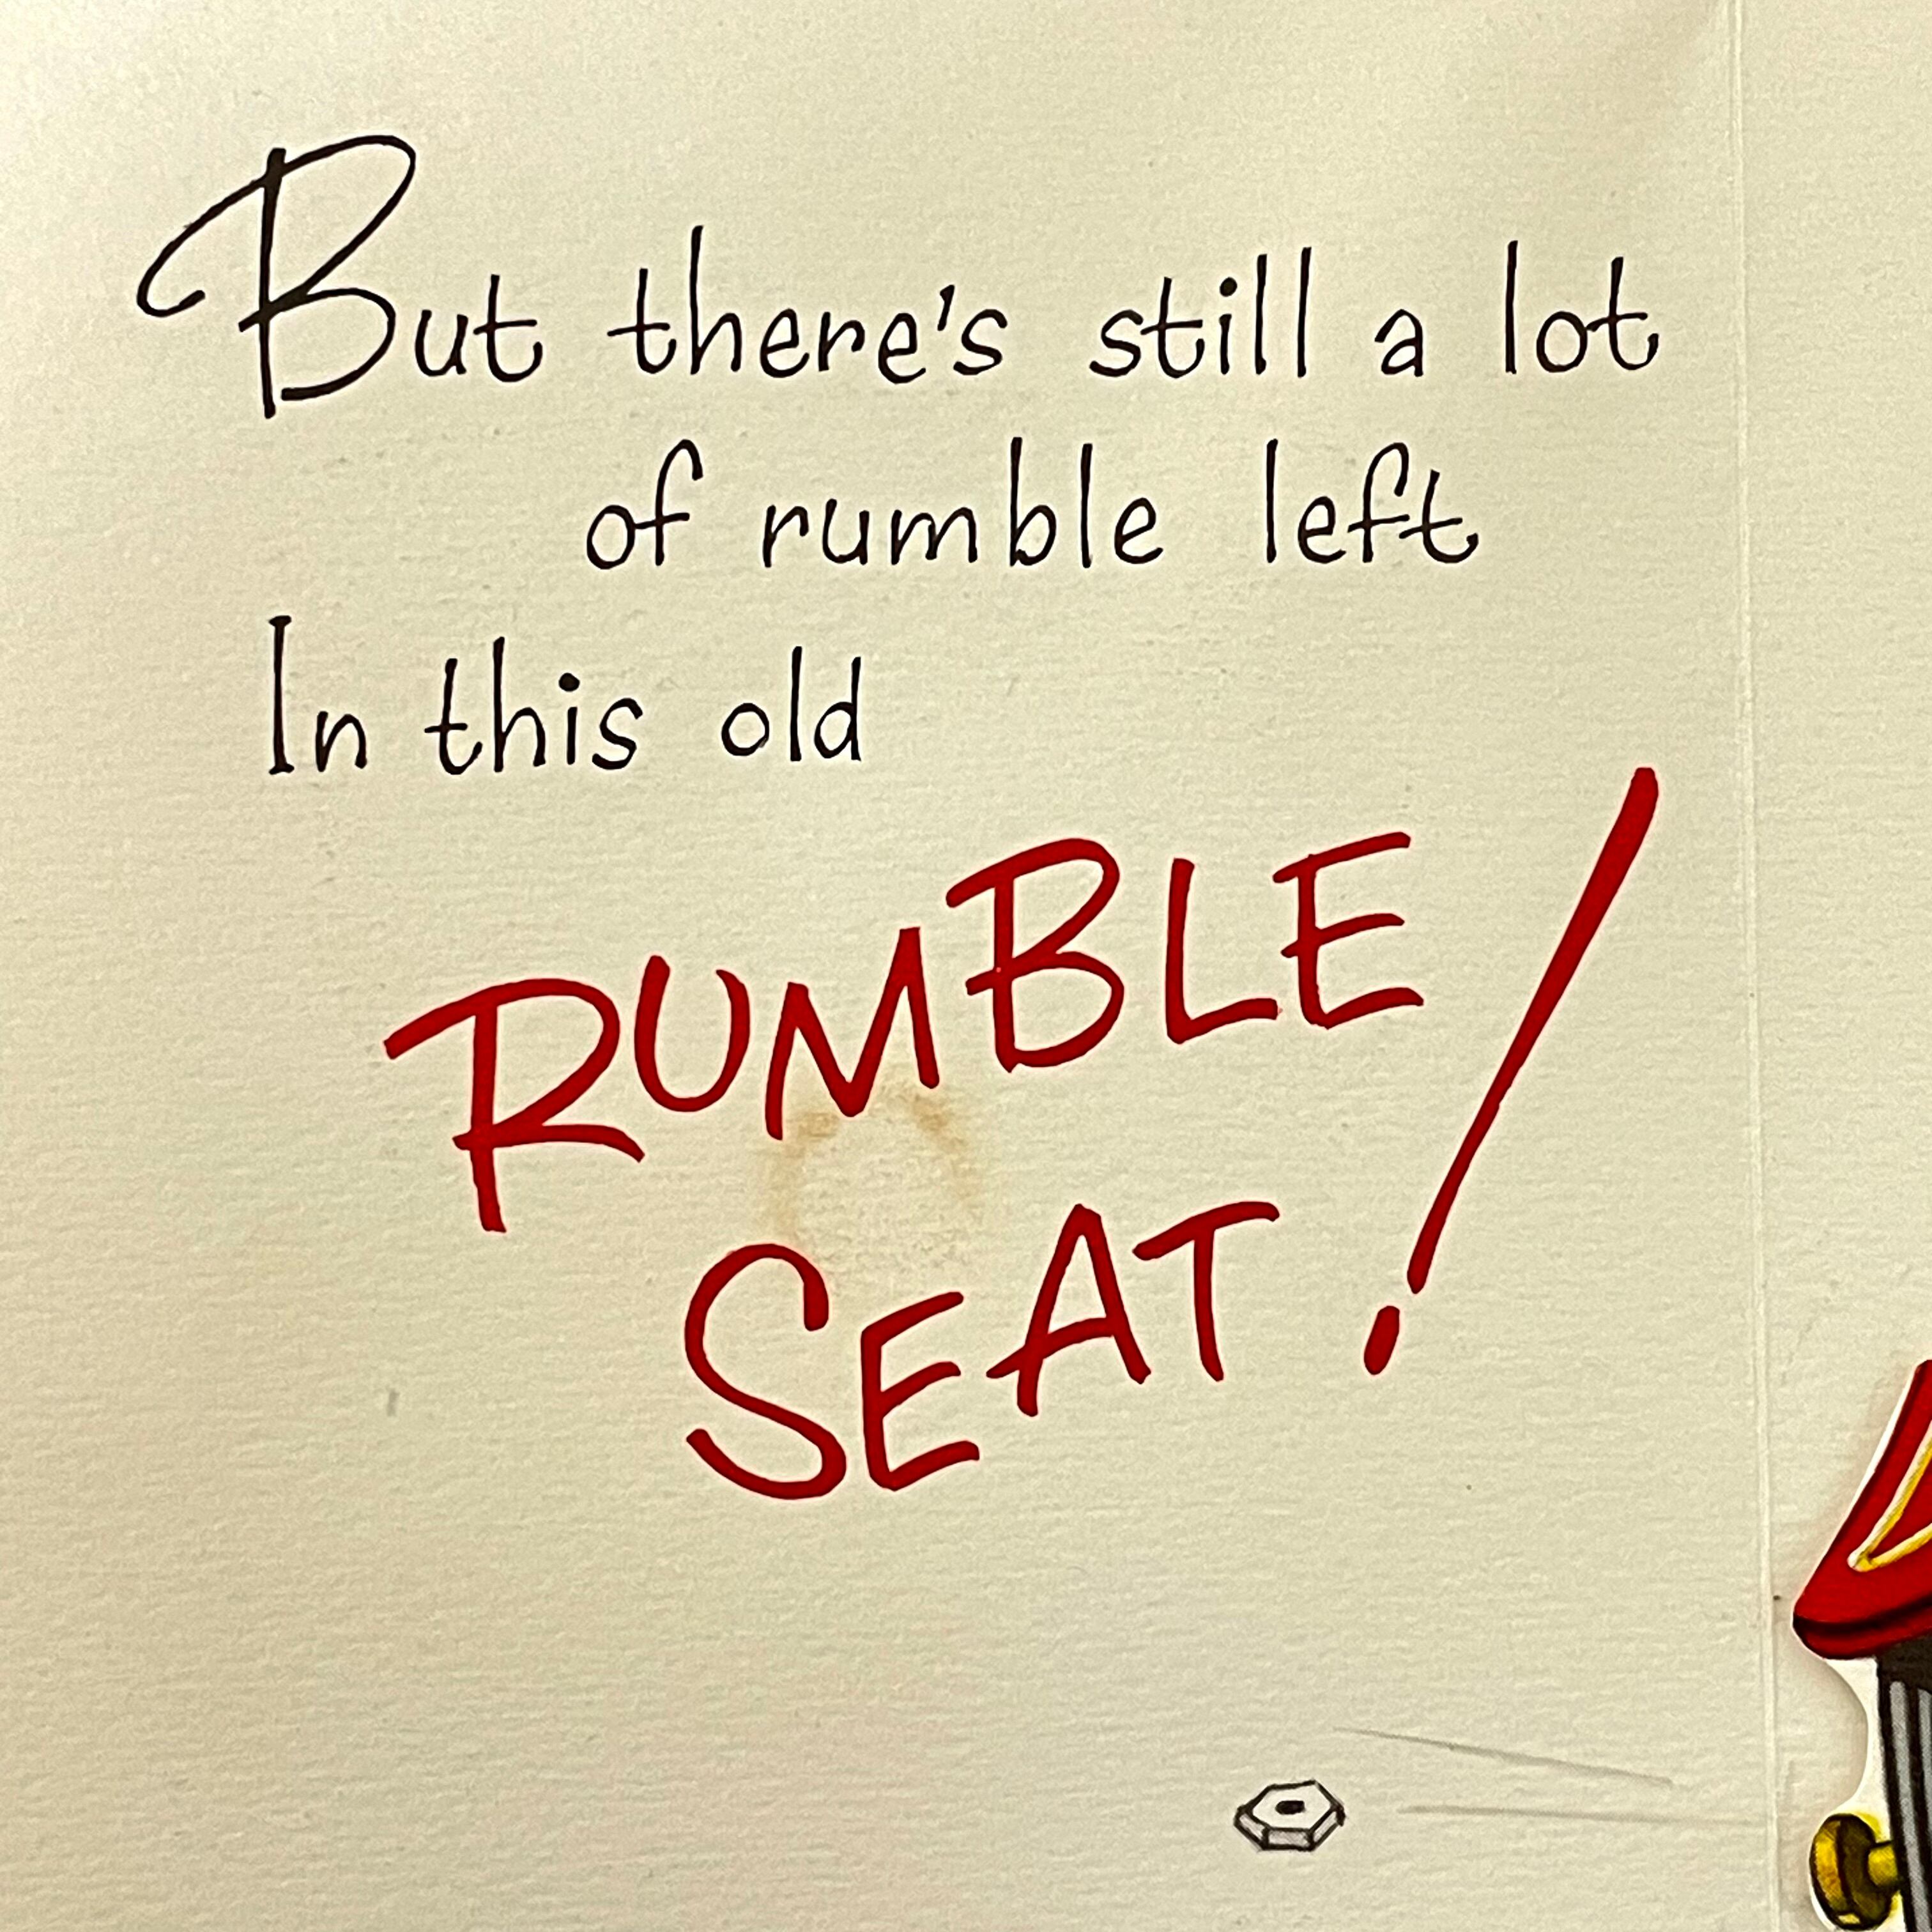 But there's still a lot
of rumble left
In this old
RUMBLE
SEAT!